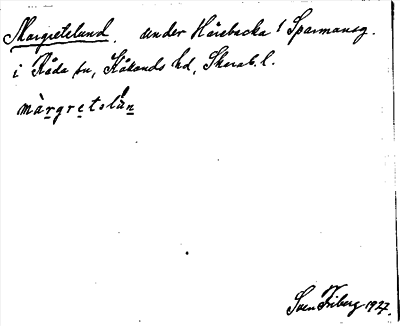 Margretelund. under Häsebacka 1 Sparmansg.
i Råda sn, Kållands hd, Skarab. l.
màrgretslån
Sven Friberg 1927.